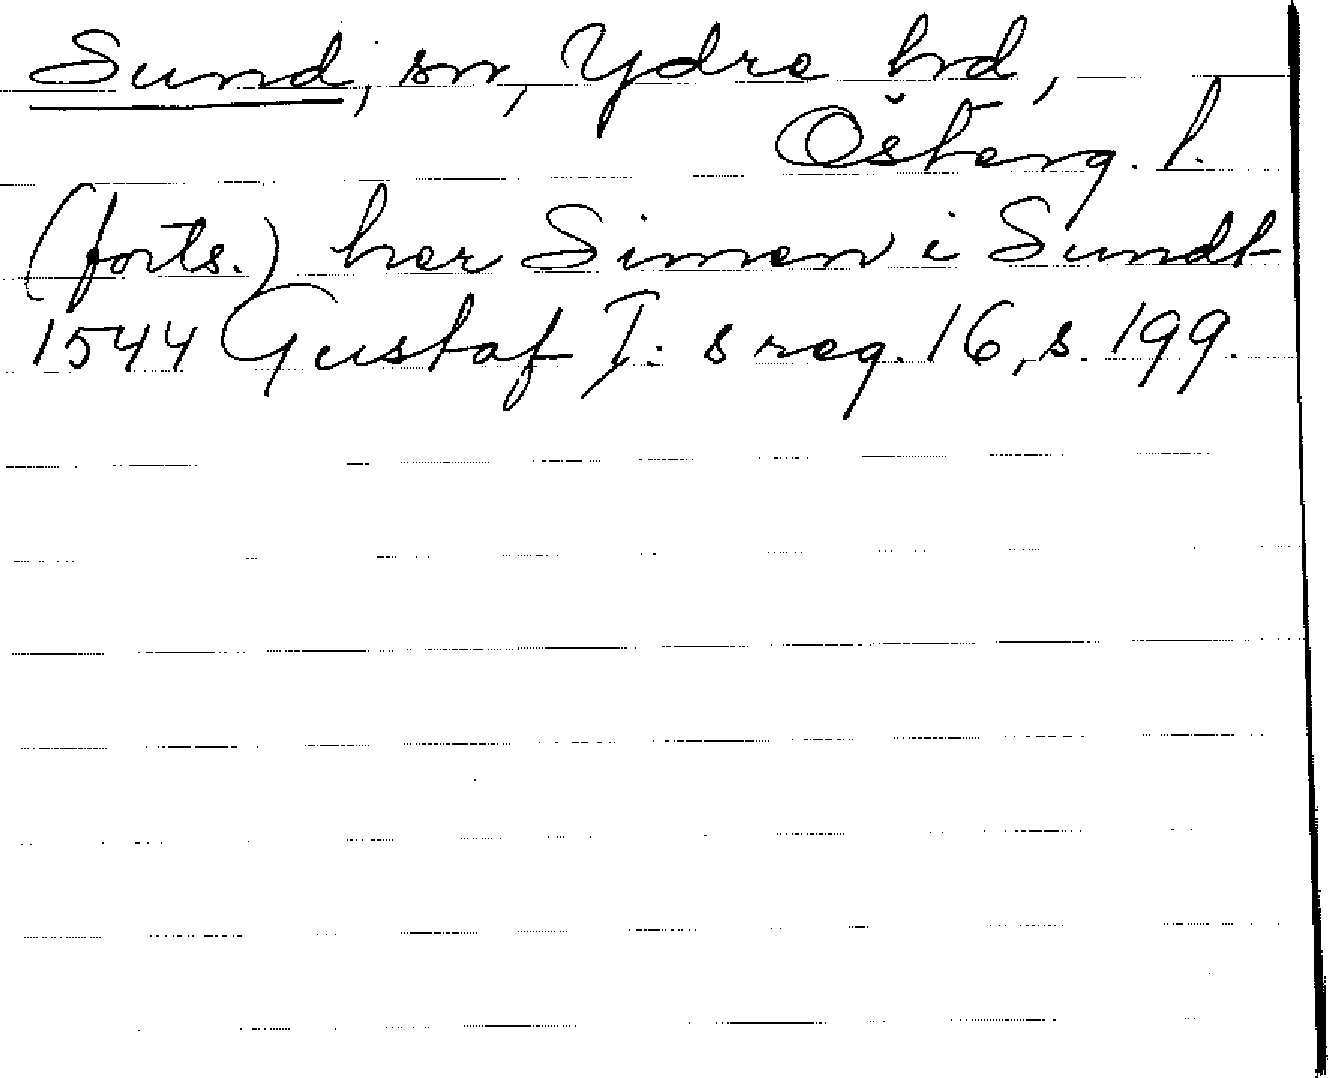 Sund, sn, Ydre hrd,
Österg. l.
(forts.) her Simen i Sundt
1544 Gustaf I:s reg. 16, s. 199.